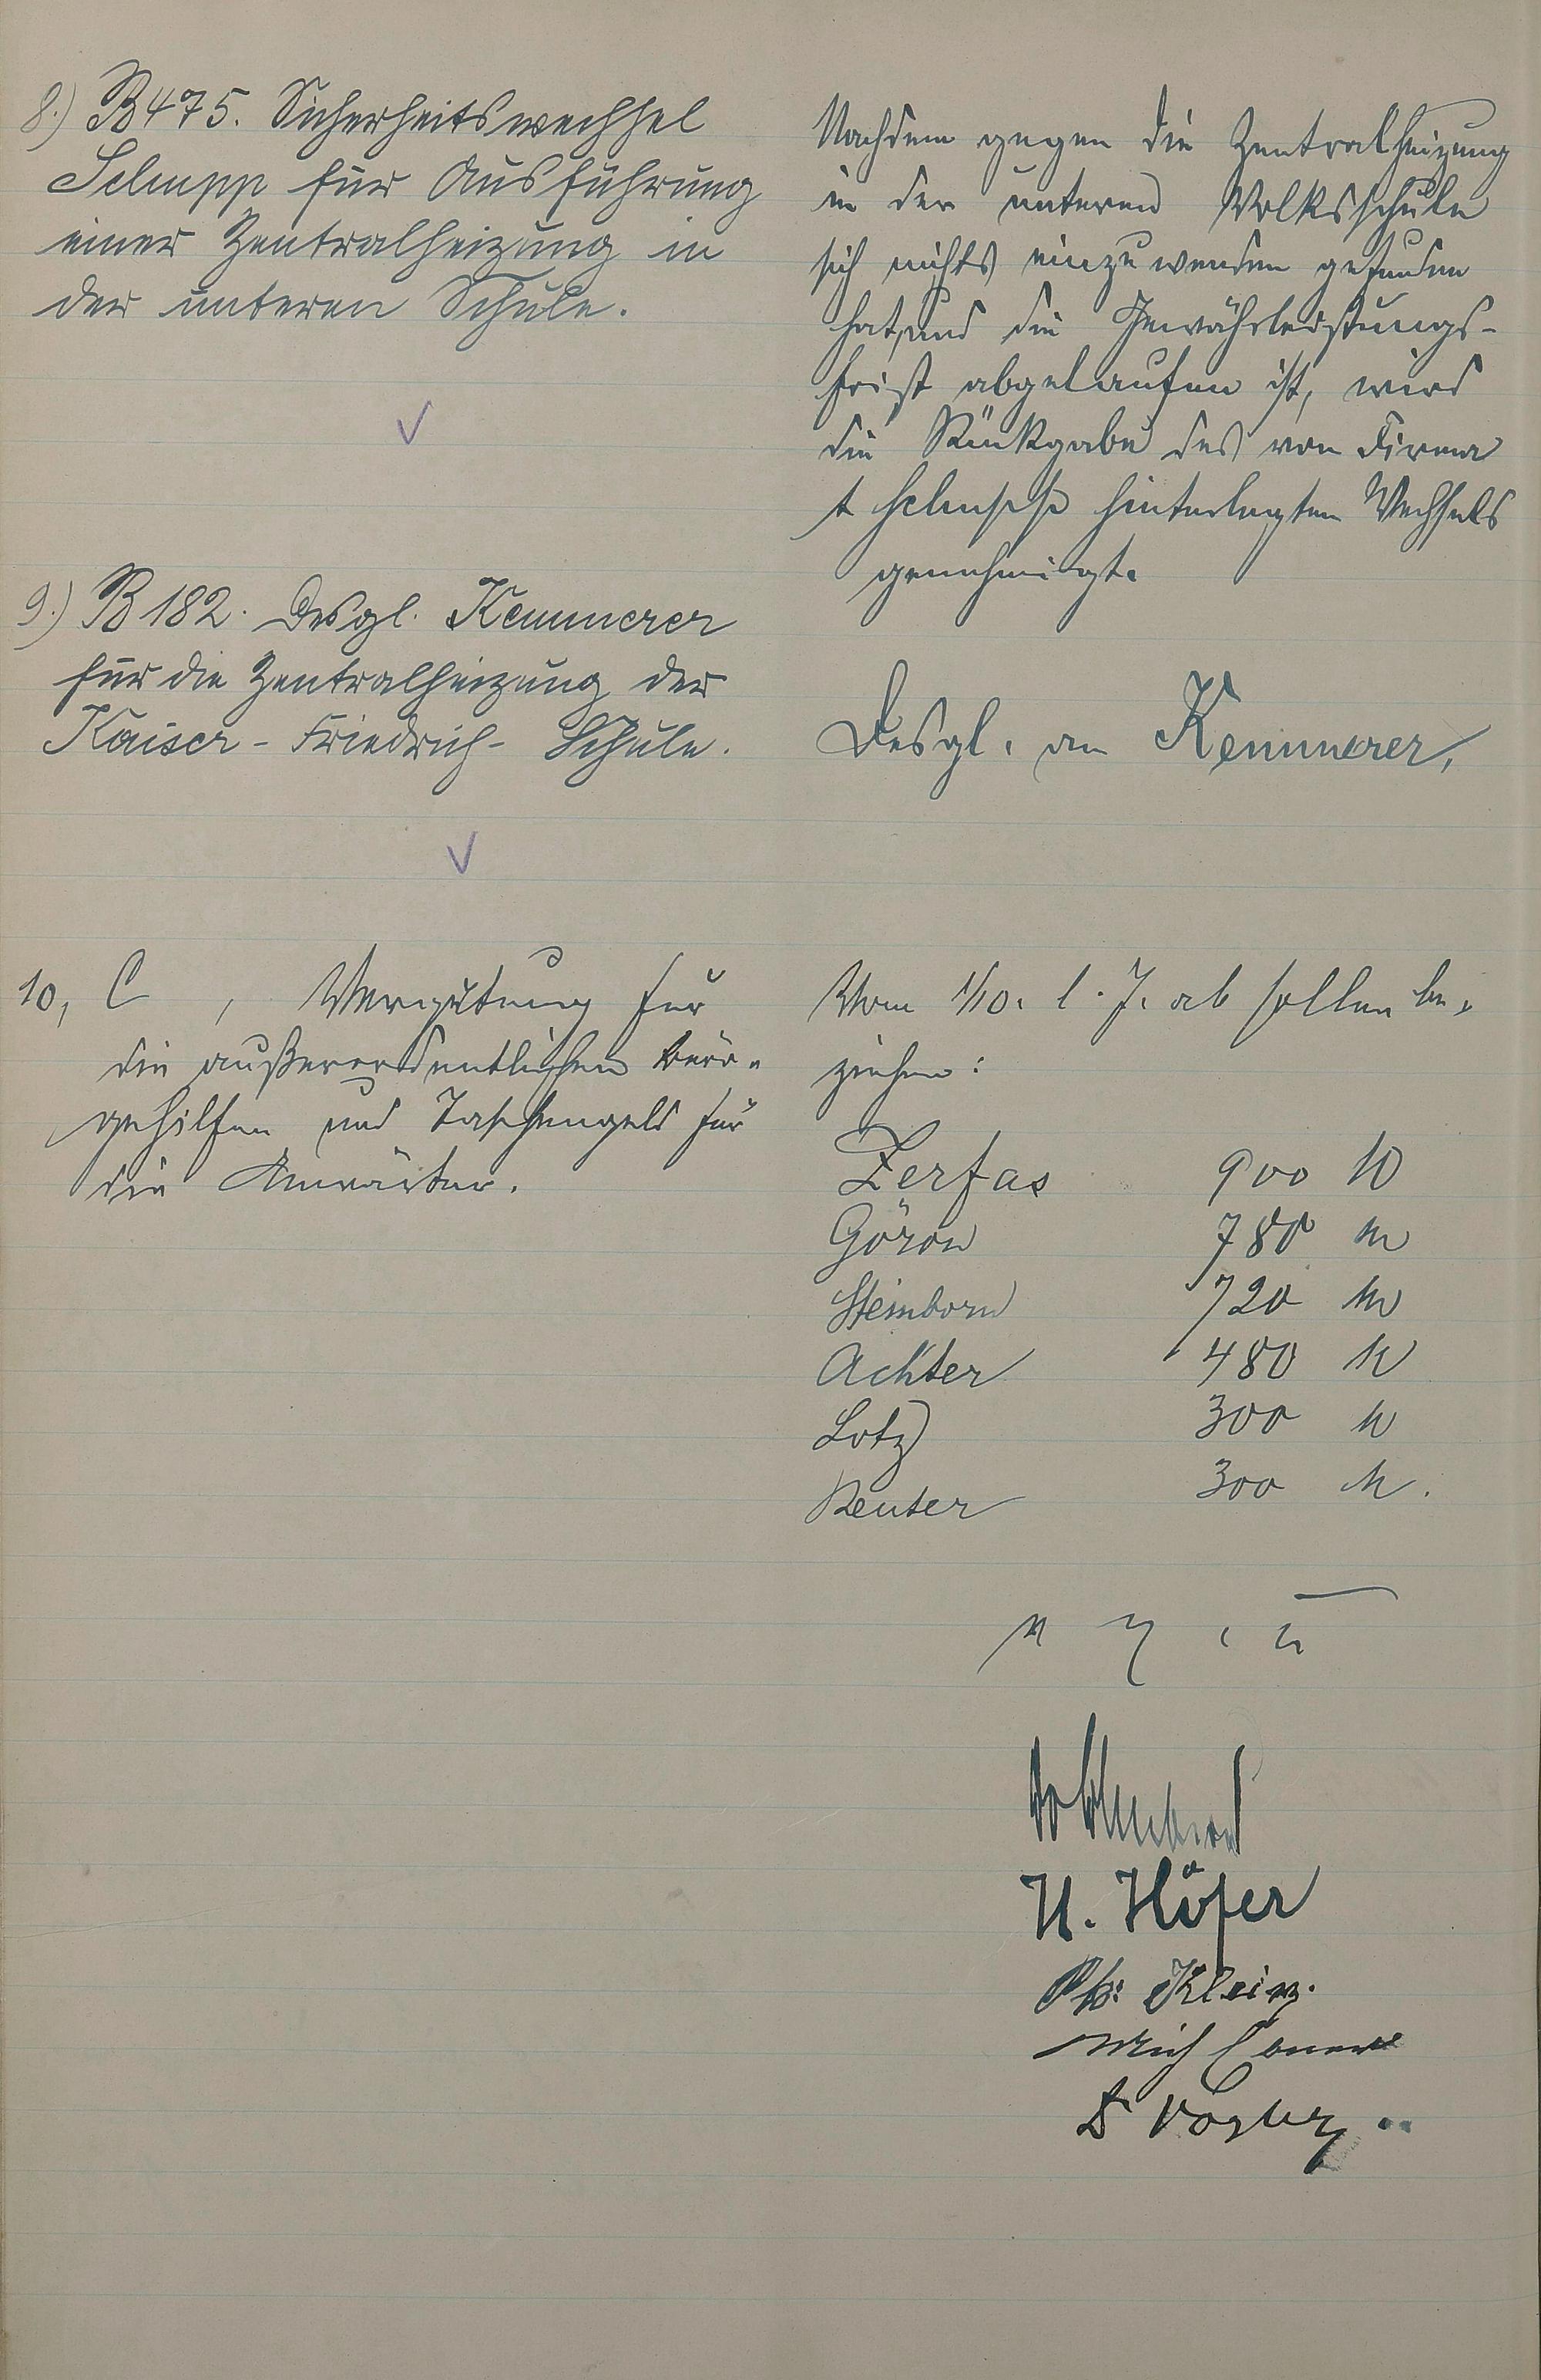 8.) B 475. Sicherheitswechsel
Schupp für Ausführung
einer Zentralheizung in
der unteren Schule.
Nachdem gegen die Zentralheizung
in der unteren Volksschule
sich nichts einzuwenden gefunden
hat, und die Gewährleistungs-
frist abgelaufen ist, wird
die Rückgabe des von Firma
Schupp hinterlegten Wechsels
genehmigt.
9.) B 182. Desgl. Kemmerer
für die Zentralheizung der
Kaiser-Friedrich-Schule.
Desgl. an Kemmerer.
10, C , Vergütung für
die außerordentlichen Büro-
gehilfen und Taschengeld für
die Anwärter.
Vom 1/10. l. J. ab sollen be-
ziehen:
Zerfas 900 M
Göron 780 M
Steinborn 720 M
Achter 480 M
Lotz 300 M
Reuter 300 M.
H. Höfer
Ph. Klein.